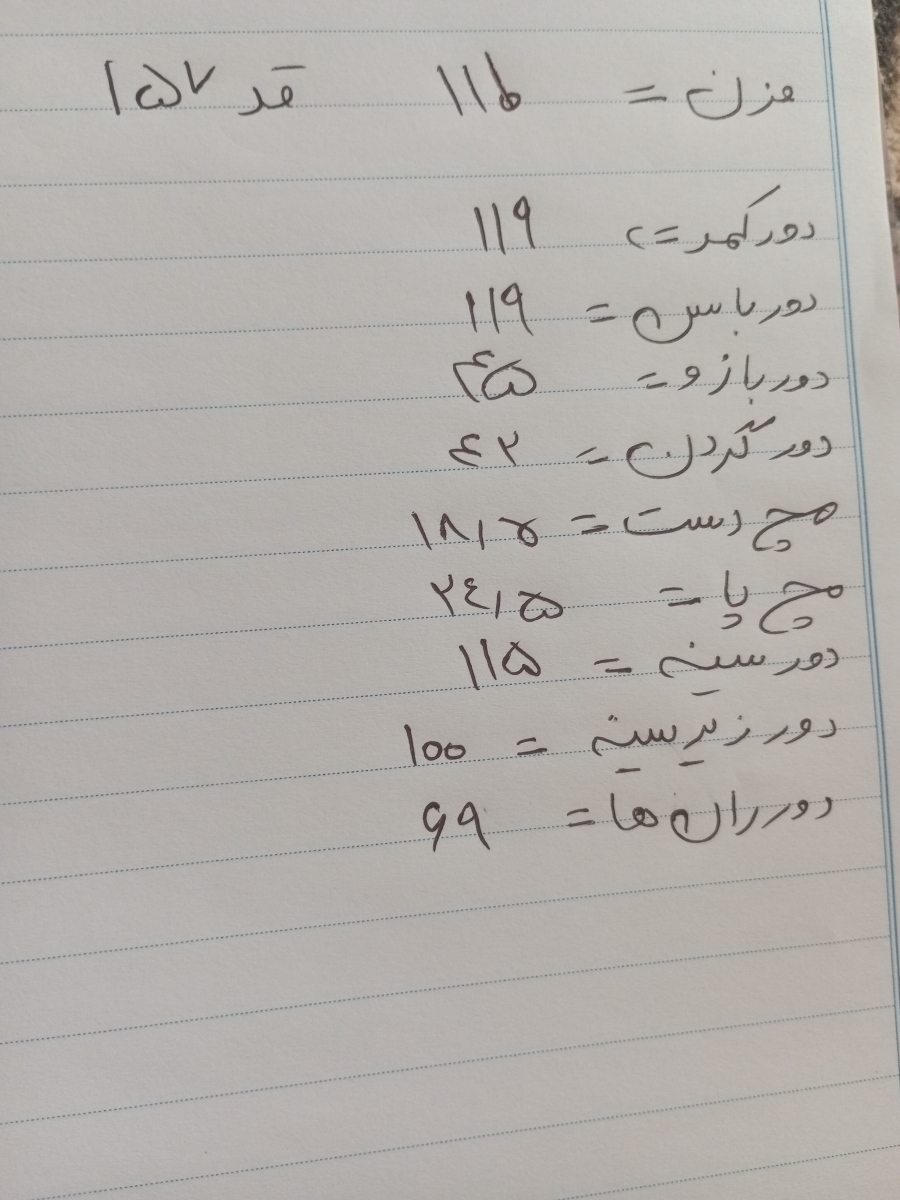 وزن = ۱۱۵ قد ۱۵۷
دور کمر = ۱۱۹
دور باسن = ۱۱۹
دور بازو = ۴۵
دور گردن = ۴۲
مچ دست = ۱۸,۵
مچ پا = ۲۴,۵
دور سینه = ۱۱۵
دور زیر سینه = ۱۰۰
دور ران ها = ۶۹